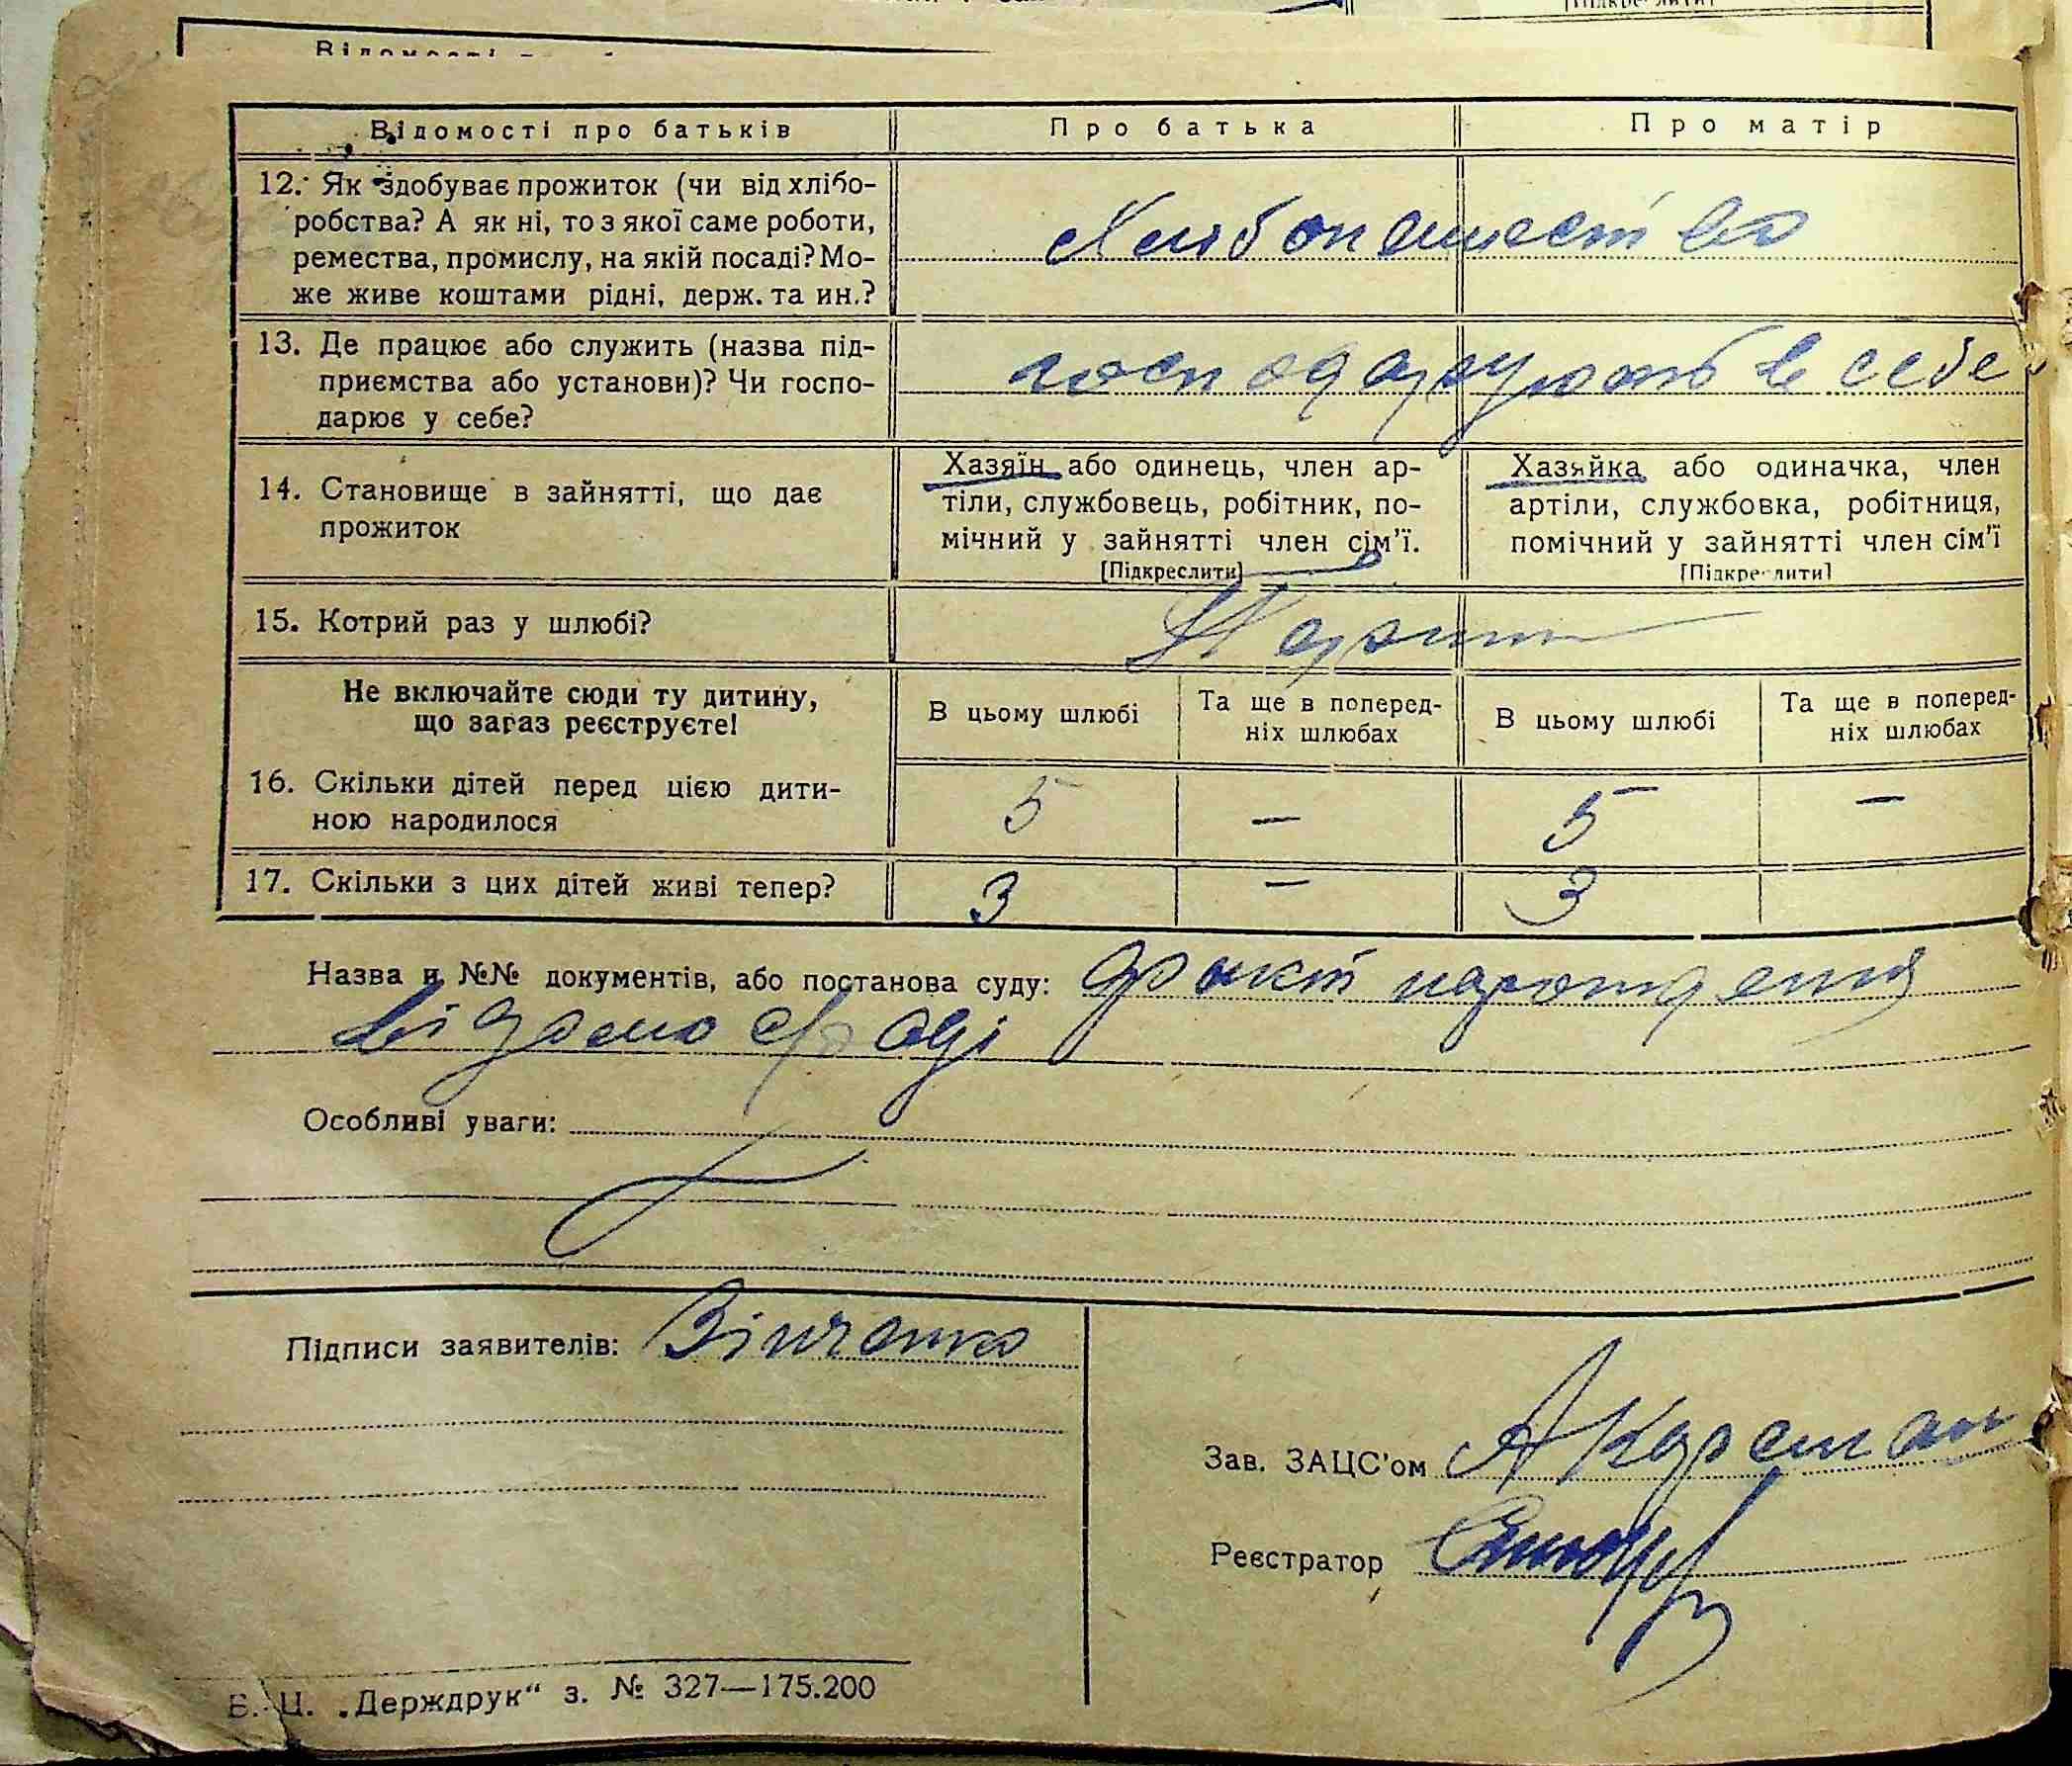 [Підкреслити]
Відомості про батьків
Про батька
Про матір
12. Як здобуває прожиток (чи від хлібо-
робства? А як ні, то з якої саме роботи,
ремества, промислу, на якій посаді? Мо-
же живе коштами рідні, держ. та ин.?
13. Де працює або служить (назва під-
приємства або установи)? Чи госпо-
дарює у себе?
господарують в себе
14. Становище в зайнятті, що дає
прожиток
Хазяїн або одинець, член ар-
тіли, службовець, робітник, по-
мічний у зайнятті член сім'ї.
[Підкреслити]
Хазяйка або одиначка, член
артіли, службовка, робітниця,
помічний у зайнятті член сім'ї
[Підкреслити]
15. Котрий раз у шлюбі?
Не включайте сюди ту дитину,
що зараз реєструєте!
В цьому шлюбі
Та ще в поперед-
ніх шлюбах
В цьому шлюбі
Та ще в поперед-
ніх шлюбах
16. Скільки дітей перед цією дити-
ною народилося
5 — 5 —
17. Скільки з цих дітей живі тепер?
3 — 3
Назва и №№ документів, або постанова суду: факт народження
відомо с/раді
Особливі уваги:
Підписи заявителів: Зінченко
Зав. ЗАЦС'ом
Реєстратор
Б. Ц. „Держдрук“ з. № 327—175.200